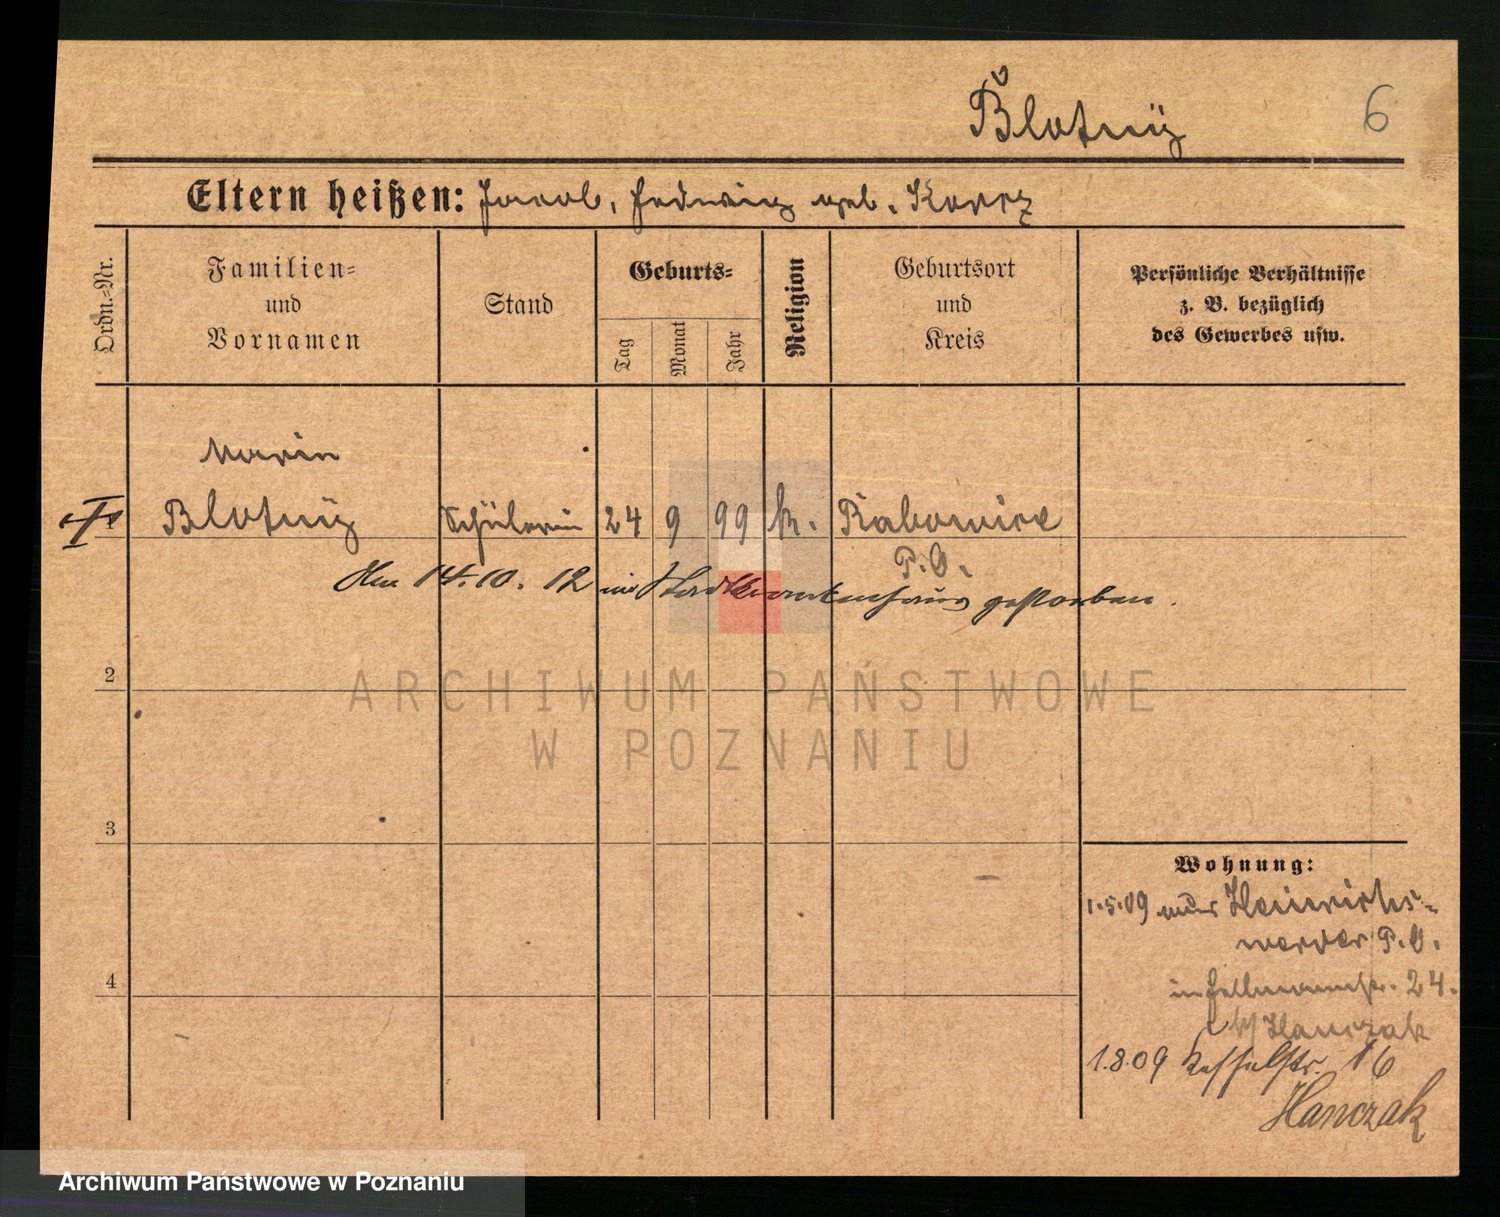 Blotnÿ 6
Eltern heißen: Jacob, Hedwig geb. Korcz
Ordn.-Nr.
Familien-
und
Vornamen
Stand
Geburts-
Tag
Monat
Jahr
Religion
Geburtsort
und
Kreis
Persönliche Verhältnisse
z. B. bezüglich
des Gewerbes usw.
Maria
Blotnÿ Schülerin 24 9 99 k. Rabowice
P.O.
Am 14.10.12 im Stadtkrankenhaus gestorben.
2
ARCHIWUM PAŃSTWOWE
W POZNANIU
3
4
Wohnung:
1.5.09 aus Heinrichs-
werder P.O.
in Hellmannstr. 24.
b/ Hanczak
1.8.09 Kesselstr. 16
Hanczak
Archiwum Państwowe w Poznaniu